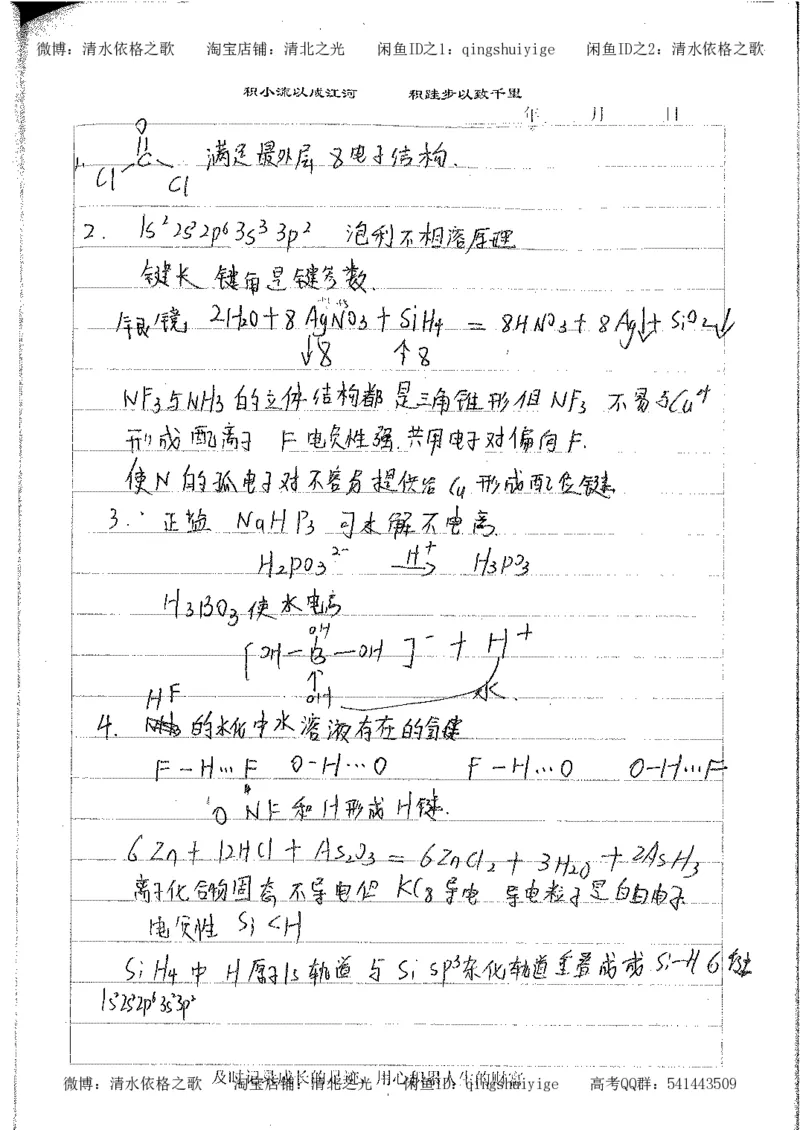 微博：清水依格之歌 淘宝店铺：清北之光 闲鱼ID之1：qingshuiyige 闲鱼ID之2：清水依格之歌
积小流以成江河 积跬步以致千里
年 月 日
O
1. Cl C Cl 满足最外层 8电子结构.
2. 1s² 2s² 2p⁶ 3s³ 3p² 泡利不相溶原理
键长 键角是键参数.
银镜 2H2O + 8 AgNO3 + SiH4 = 8HNO3 + 8 Ag↓ + SiO2↓
↓8 ↑8
NF3与NH3的立体结构都是三角锥形但 NF3 不易与Cu²⁺
形成配离子 F 电负性强.共用电子对偏向F.
使N的孤电子对不容易提供给Cu形成配位键
3. 正盐 NaHP3 可水解不电离.
H2PO3²⁻ H⁺→ H3PO3
H3BO3使水电离
OH
[OH—B—OH]⁻ + H⁺
↑
OH 水.
HF
4. 的水化中水溶液有存在的氢键
F—H…F O—H…O F—H…O O—H…F
O N F 和H形成H键.
6Zn + 12HCl + As2O3 = 6ZnCl2 + 3H2O + 2AsH3
离子化合物固态不导电但 KC8导电 导电粒子是自由电子
电负性 Si<H
SiH4 中 H原子1s轨道与Si sp³杂化轨道重叠成或 Si—H 6键
1s²2s²2p⁶3s³3p²
及时记录成长的足迹 用心积累人生的财富
微博：清水依格之歌 淘宝店铺：清北之光 闲鱼ID：qingshuiyige 高考QQ群：541443509